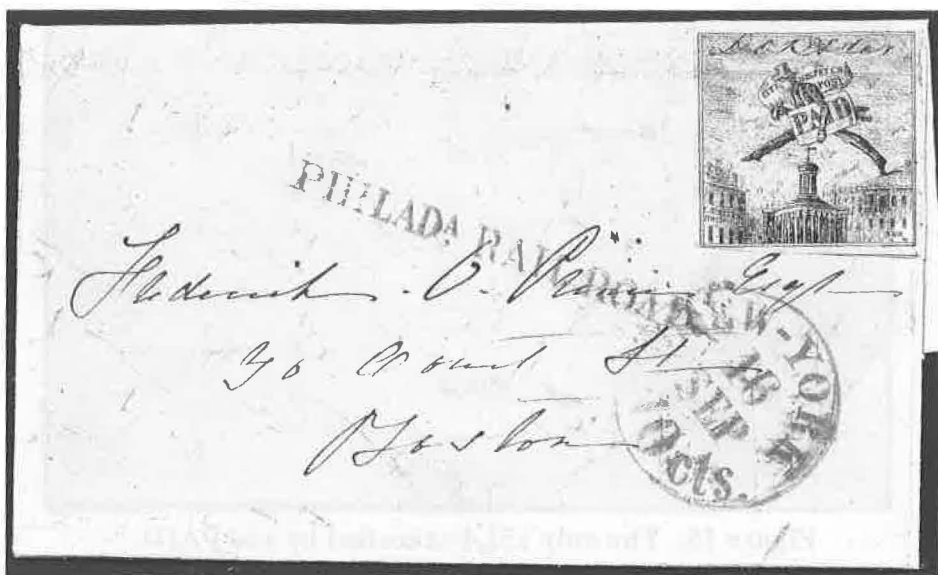 CITY DESPATCH
POST
PAID
PHILADA RAILROAD
Frederick . O. Prince Esqr
30 Court St
Boston
NEW-YORK
16
SEP
10cts.